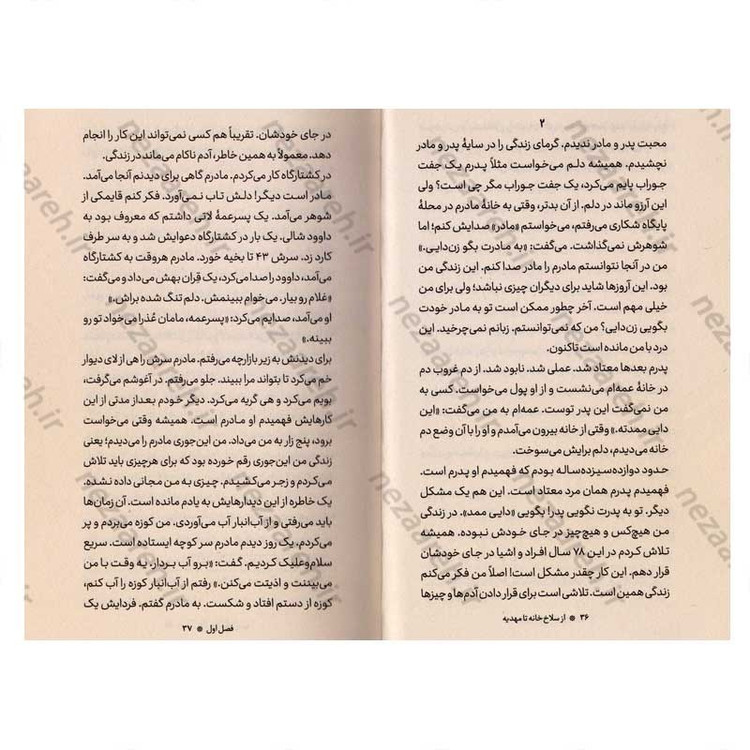 ۲
محبت پدر و مادر ندیدم. گرمای زندگی را در سایهٔ پدر و مادر
نچشیدم. همیشه دلم می‌خواست مثلاً پدرم یک جفت
جوراب پایم می‌کرد، یک جفت جوراب مگر چی است؟ ولی
این آرزو ماند در دلم. از آن بدتر، وقتی به خانهٔ مادرم در محلهٔ
پایگاه شکاری می‌رفتم، می‌خواستم «مادر» صدایش کنم؛ اما
شوهرش نمی‌گذاشت. می‌گفت: «به مادرت بگو زن‌دایی.»
من در آنجا نتوانستم مادرم را مادر صدا کنم. این زندگی من
بود. این آروزها شاید برای دیگران چیزی نباشد؛ ولی برای من
خیلی مهم است. آخر چطور ممکن است تو به مادر خودت
بگویی زن‌دایی؟ من که نمی‌توانستم. زبانم نمی‌چرخید. این
درد با من مانده است تاکنون.
پدرم بعدها معتاد شد. عملی شد. نابود شد. از دم غروب دم
در خانهٔ عمه‌ام می‌نشست و از او پول می‌خواست. عمه‌ام به
من نمی‌گفت این پدر توست. عمه‌ام به من می‌گفت: «این
دایی ممدته.» وقتی از خانه بیرون می‌آمدم و او را با آن وضع دم
خانه می‌دیدم، دلم برایش می‌سوخت.
حدود دوازده‌سیزده‌ساله بودم که فهمیدم او پدرم است.
فهمیدم پدرم همان مرد معتاد است. این هم یک مشکل
دیگر. تو به پدرت نگویی پدر! بگویی «دایی ممد». در زندگی
من هیچ‌کس و هیچ‌چیز در جای خودش نبوده. همیشه
تلاش کردم در این ۷۸ سال افراد و اشیا در جای خودشان
قرار دهم. این کار چقدر مشکل است! اصلاً من فکر می‌کنم
زندگی همین است. تلاشی است برای قرار دادن آدم‌ها و چیزها
۳۶ از سلاخ‌خانه تا مهدیه
در جای خودشان. تقریباً هم کسی نمی‌تواند این کار را انجام
دهد. معمولاً به همین خاطر، آدم ناکام می‌ماند در زندگی.
در کشتارگاه کار می‌کردم. مادرم گاهی برای دیدنم آنجا می‌آمد.
مادر است دیگر! دلش تاب نمی‌آورد. فکر کنم قایمکی از
شوهر می‌آمد. یک پسرعمهٔ لاتی داشتم که معروف بود به
داوود شالی. یک بار در کشتارگاه دعوایش شد و به سر طرف
کارد زد. سرش ۴۳ تا بخیه خورد. مادرم هروقت به کشتارگاه
می‌آمد، داوود را صدا می‌کرد، یک قِران بهش می‌داد و می‌گفت:
«غلام رو بیار. می‌خوام ببینمش. دلم تنگ شده براش.»
او می‌آمد، صدایم می‌کرد: «پسرعمه، مامان عُذرا می‌خواد تو رو
ببینه.»
برای دیدنش به زیر بازارچه می‌رفتم. مادرم سرش را هی از لای دیوار
خم می‌کرد تا بتواند مرا ببیند. جلو می‌رفتم. در آغوشم می‌گرفت،
بویم می‌کرد و هی گریه می‌کرد. دیگر خودم بعداز مدتی از این
کارهایش فهمیدم او مادرم است. همیشه وقتی می‌خواست
برود، پنج زار به من می‌داد. من این‌جوری مادرم را می‌دیدم؛ یعنی
زندگی من این‌جوری رقم خورده بود که برای هرچیزی باید تلاش
می‌کردم و زجر می‌کشیدم. چیزی به من مجانی داده نشده.
یک خاطره از این دیدارهایش به یادم مانده است. آن زمان‌ها
باید می‌رفتی و از آب‌انبار آب می‌آوردی. من کوزه می‌بردم و پر
می‌کردم. یک روز دیدم مادرم سر کوچه ایستاده است. سریع
سلام‌وعلیک کردیم. گفت: «برو آب بردار. یه وقت با من
می‌بیننت و اذیتت می‌کنن.» رفتم از آب‌انبار کوزه را آب کنم،
کوزه از دستم افتاد و شکست. به مادرم گفتم. فردایش یک
فصل اول ۳۷
nezaareh.ir